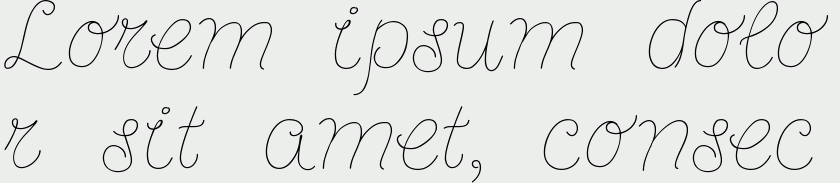 Lorem ipsum dolo
r sit amet, consec